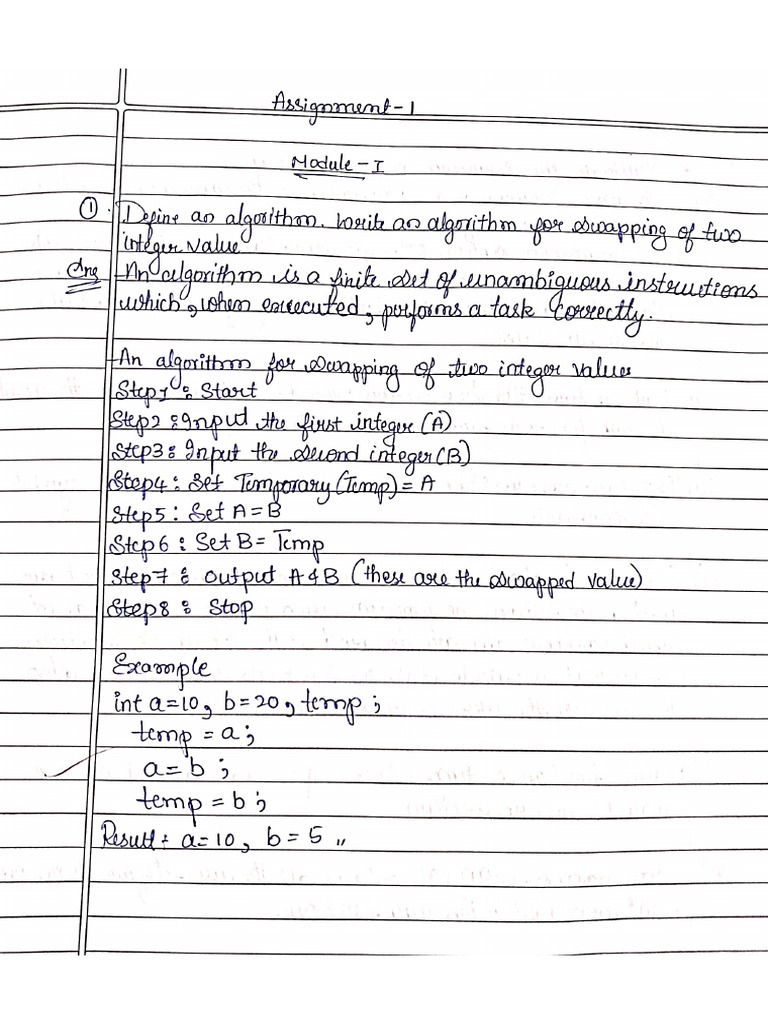 Assignment-1
Module-I
① Define an algorithm. Write an algorithm for swapping of two
integer value
Ans An algorithm is a finite set of unambiguous instructions
which, when executed, performs a task correctly.
An algorithm for swapping of two integer values
Step1: Start
Step2: Input the first integer (A)
Step3: Input the second integer (B)
Step4: Set Temporary (Temp) = A
Step5: Set A = B
Step6: Set B = Temp
Step7: output A & B (these are the swapped value)
Step8: Stop
Example
int a=10, b=20, temp;
temp = a;
a = b;
temp = b;
Result: a=10, b=5 ,,